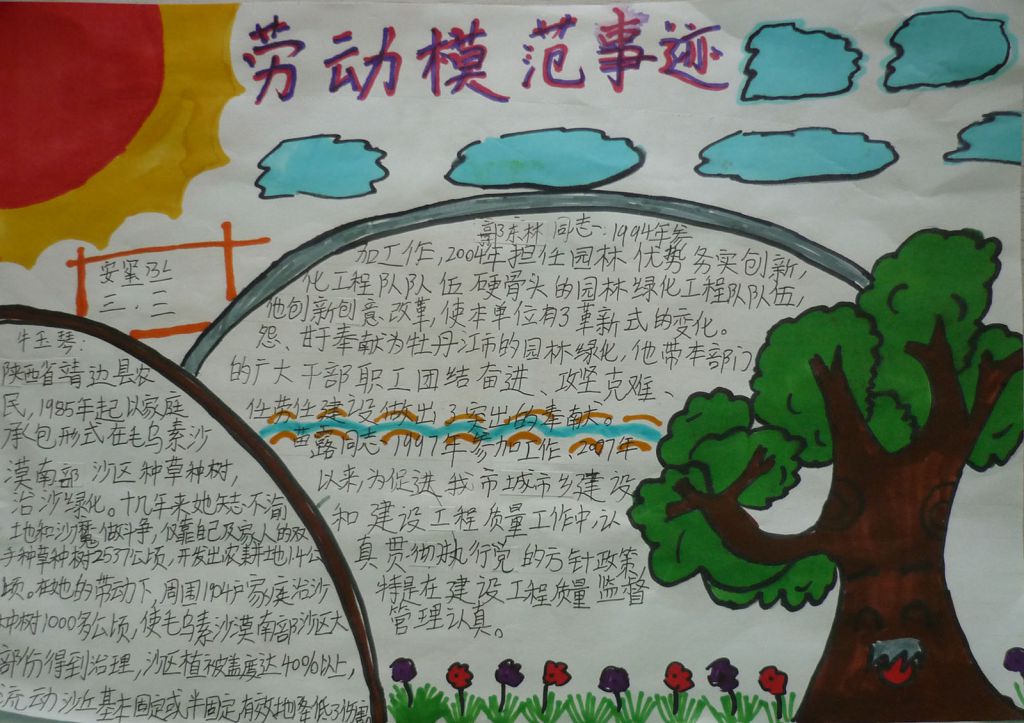 劳动模范事迹
安案
三.二
牛玉琴:
陕西省靖边县农
民,1985年起以家庭
承包形式在毛乌素沙
漠南部沙区种草种树,
治沙绿化。十几年来她矢志不渝
土地和沙魔做斗争,仅靠自己及家人的双
手种草种树2537公顷,开发出农耕地14公
顷。在她的带动下,周围1904户家庭治沙
种树1000多公顷,使毛乌素沙漠南部沙区大
部份得到治理,沙区植被盖度达40%以上,
流动沙丘基本固定或半固定,有效地降低了
郭东林同志:1994年参
加工作,2004年担任园林优势务实创新,
化工程队队伍硬骨头的园林绿化工程队队伍,
他创新创意改革,使本单位有了革新式的变化。
怨、甘于奉献为牡丹江市的园林绿化,他带本部门
的广大干部职工团结奋进、攻坚克难、
任劳任建设做出了突出的奉献。
苗露同志1997年参加工作,2007年
以来,为促进我市城市乡建设
和建设工程质量工作中,认
真贯彻执行党的方针政策,
特是在建设工程质量监督
管理认真。